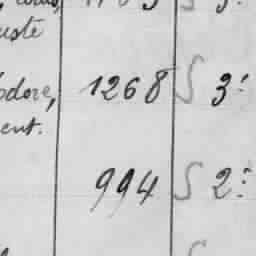 uste
odore, 1268 S 3:
ent.
994 S 2: